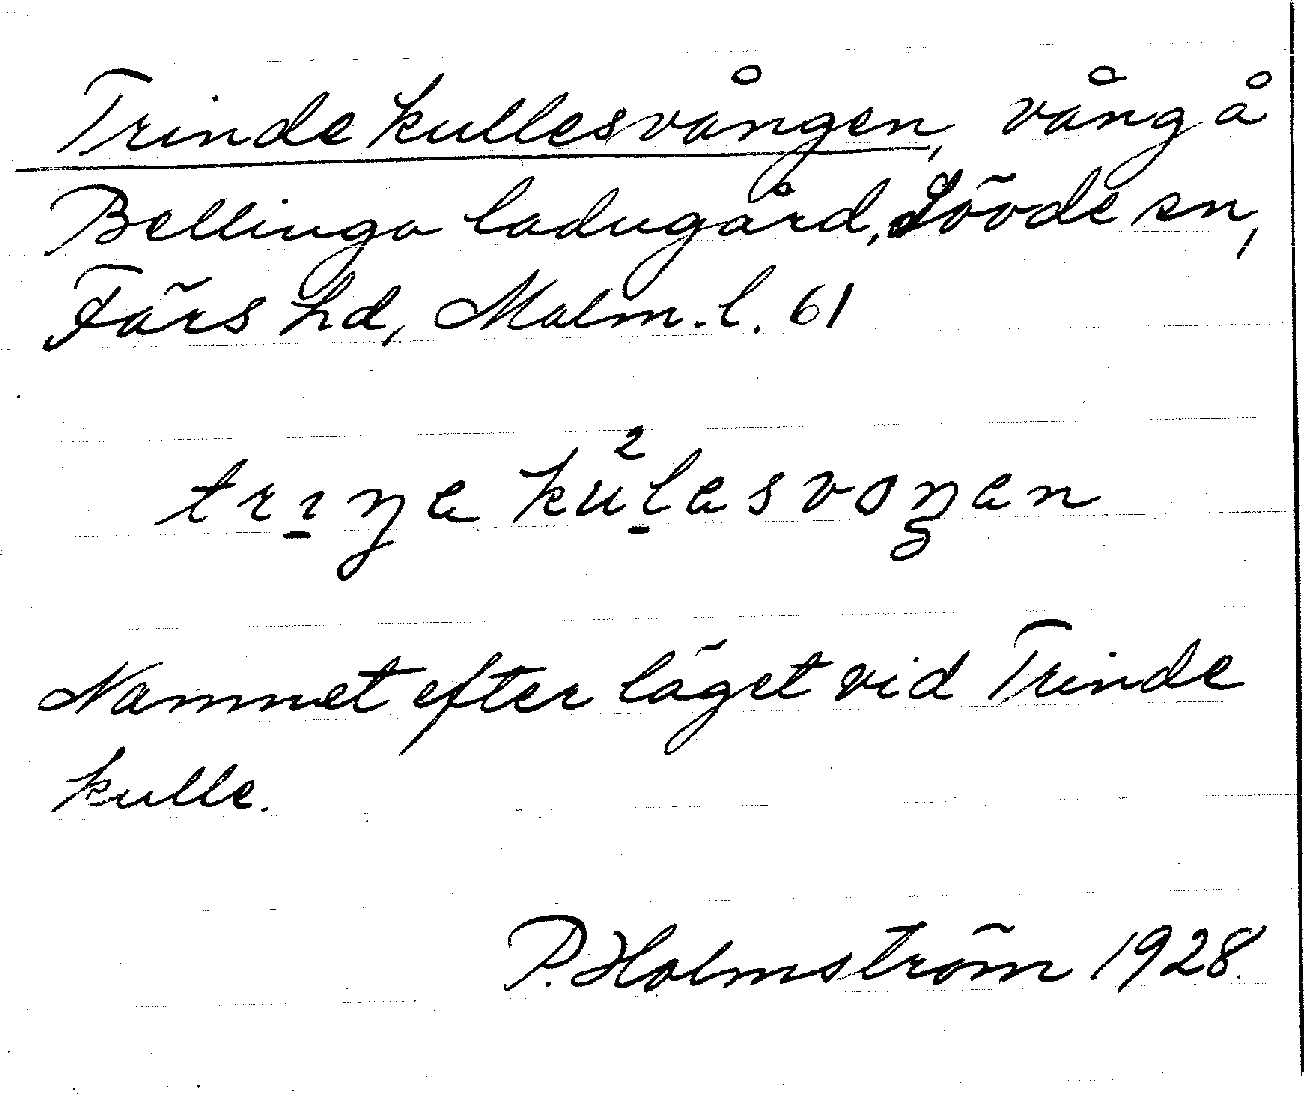 Trinde kullesvången, vång å
Bellinga ladugård, Sövde sn,
Färs hd, Malm. l. 61
trıŋe ku²lesvoŋen
Namnet efter läget vid Trinde
kulle.
P. Holmström 1928.